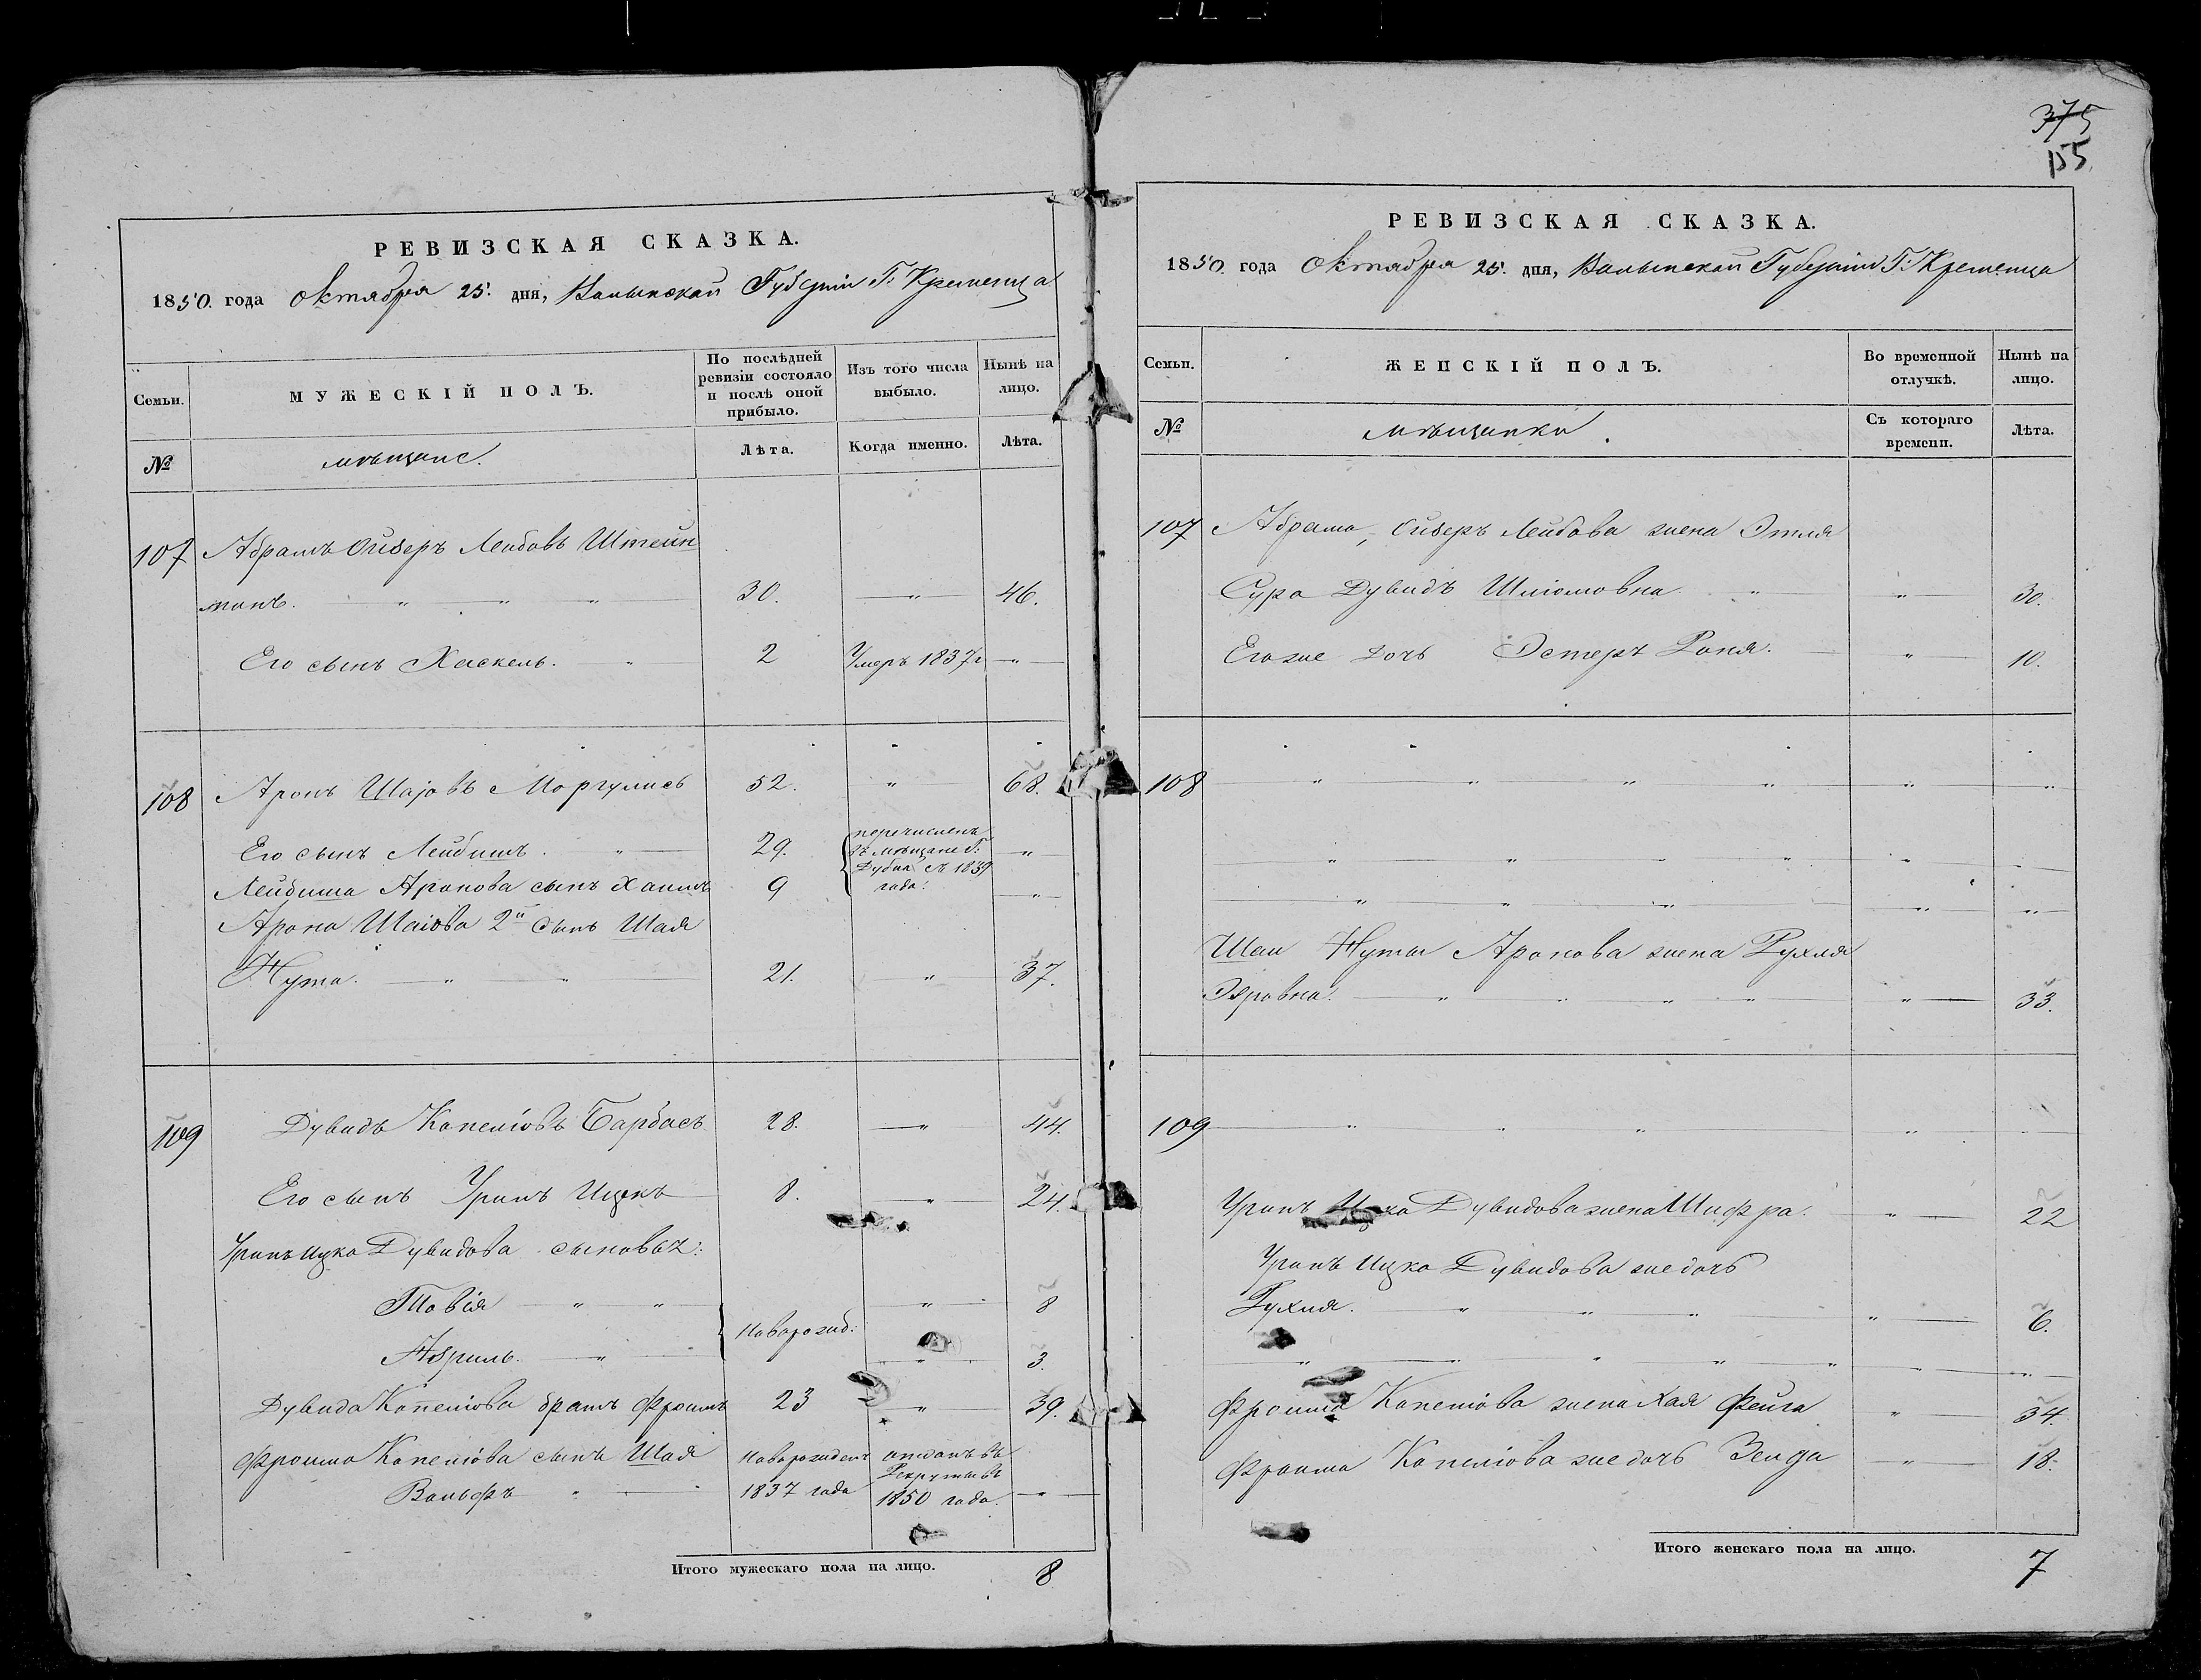 375
155
РЕВИЗСКАЯ СКАЗКА.
1850. года Октября 25. дня, Волынской Губерніи Г. Кременца
Семьи.
МУЖЕСКІЙ ПОЛЪ.
По послѣдней ревизіи состояло и послѣ оной прибыло.
Изъ того числа выбыло.
Нынѣ на лицо.
№
мѣщане.
Лѣта.
Когда именно.
Лѣта.
107 Абрамъ Ойзеръ Лейбовъ Штейн
манъ. " " " 30. " 46.
Его сынъ Хаскель. " 2 Умеръ 1837г "
108 Аронъ Шаjовъ Моргулисъ 52. " 68.
Его сынъ Лейбишъ. " 29. перечисленъ "
въ мѣщане г.
Дубна съ 1839
года.
Лейбиша Аронова сынъ Хаимъ 9 "
Арона Шаіова 2й сынъ Шая
Нута. " " 21. " 37.
109 Дувидъ Копеліовъ Барбасъ 28. " 44.
Его сынъ Уринъ Ицекъ 8. " 24.
Уринъ Ицка Дувидова сыновья:
Товія " " " 8
Новорожд:
Азриль. " " 3.
Дувида Копеліова братъ Фроимъ 23 " 39.
Фроима Копеліова сынъ Шая Новорожден отданъ въ
Рекруты въ
Вольфъ " 1837 года 1850 года. "
Итого мужескаго пола на лицо. 8
РЕВИЗСКАЯ СКАЗКА.
1850. года Октября 25. дня, Волынской Губерніи Г. Кременца
Семьи.
ЖЕНСКІЙ ПОЛЪ.
Во временной отлучкѣ.
Нынѣ на лицо.
№
мѣщанки.
Съ котораго времени.
Лѣта.
107 Абрама, Ойзеръ Лейбова жена Этля
Сура Дувидъ Шліомовна. " " 30.
Его же дочь Эстеръ Роня. " 10.
108 " " " " " "
" " " " "
" " " " "
Шаи Нуты Аронова жена Рухля
" " " " " 33.
109 " " " "
Уринъ Ицка Дувидова жена Шифра. " 22
Уринъ Ицка Дувидова же дочь
Рухля. " " " " 6.
" " " " " " "
Фроима Копеліова жена Хая Фейга " 34.
Фроима Копеліова же дочь " 18.
Итого женскаго пола на лицо. 7